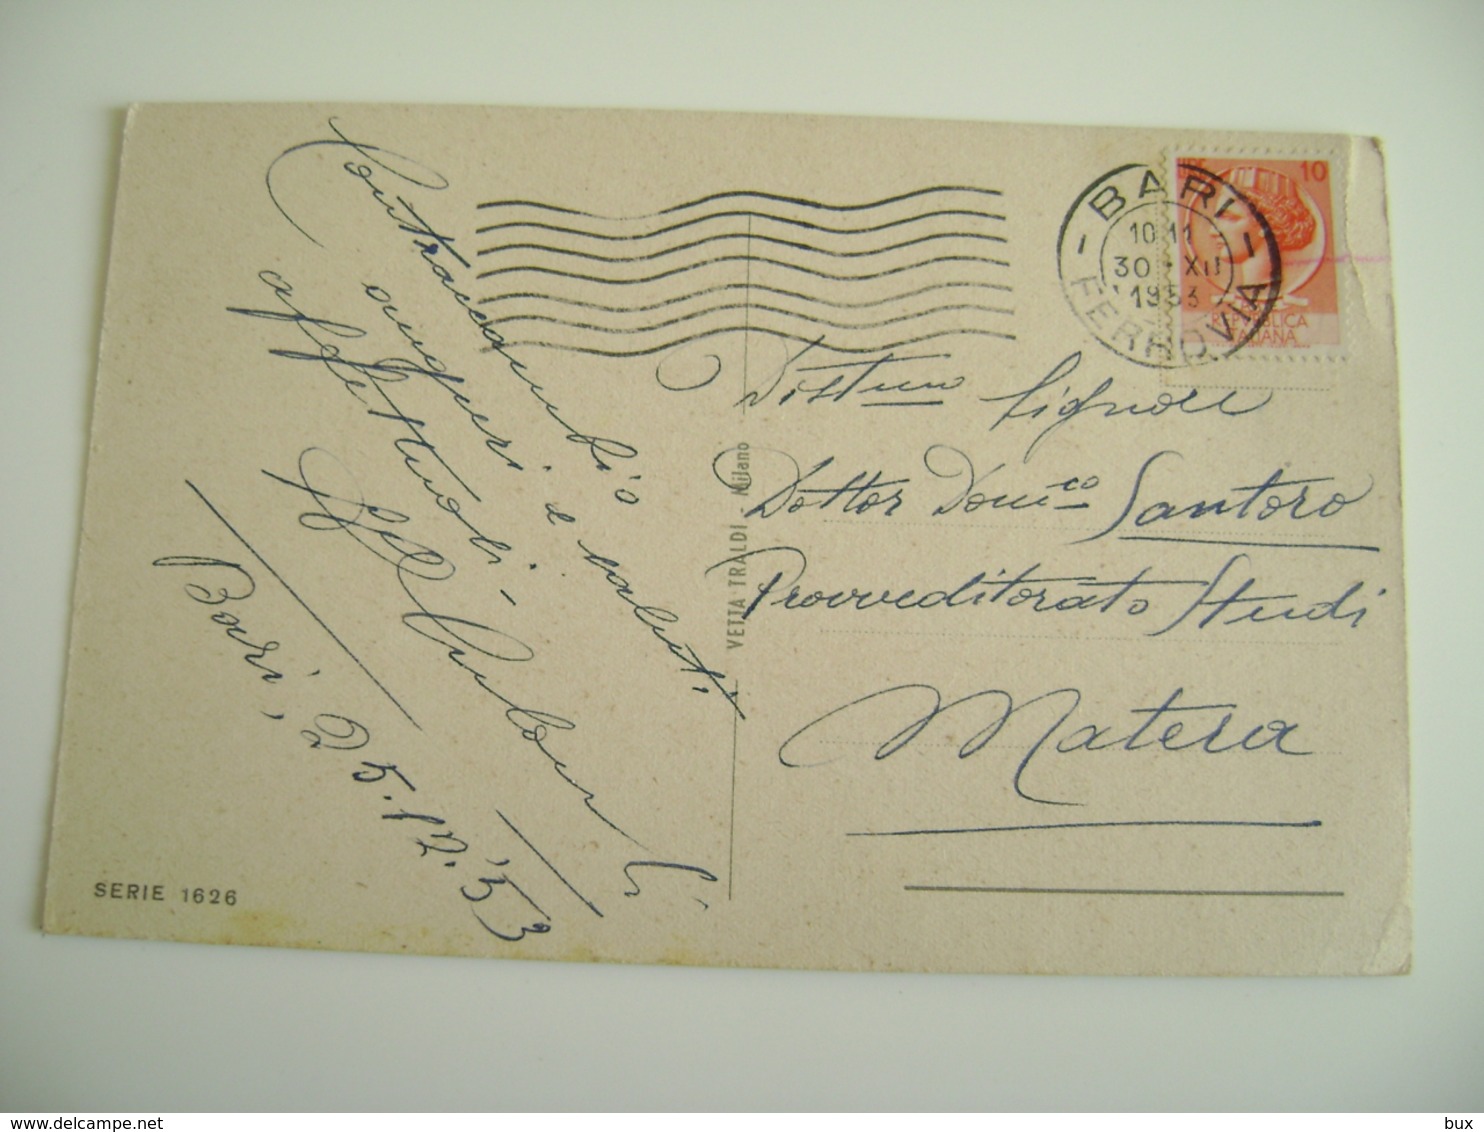 Contraccambio
auguri e saluti
affettuosi -
Bari, 25.12.'53
SERIE 1626
VETTA TRALDI Milano
BARI
10-11
30 - XII
1953
FERROVIA
LIRE 10
REPVBBLICA
ITALIANA
Distimo Signore
Dottor Domco Santoro
Provveditorato Studi
Matera
delcampe.net
bux